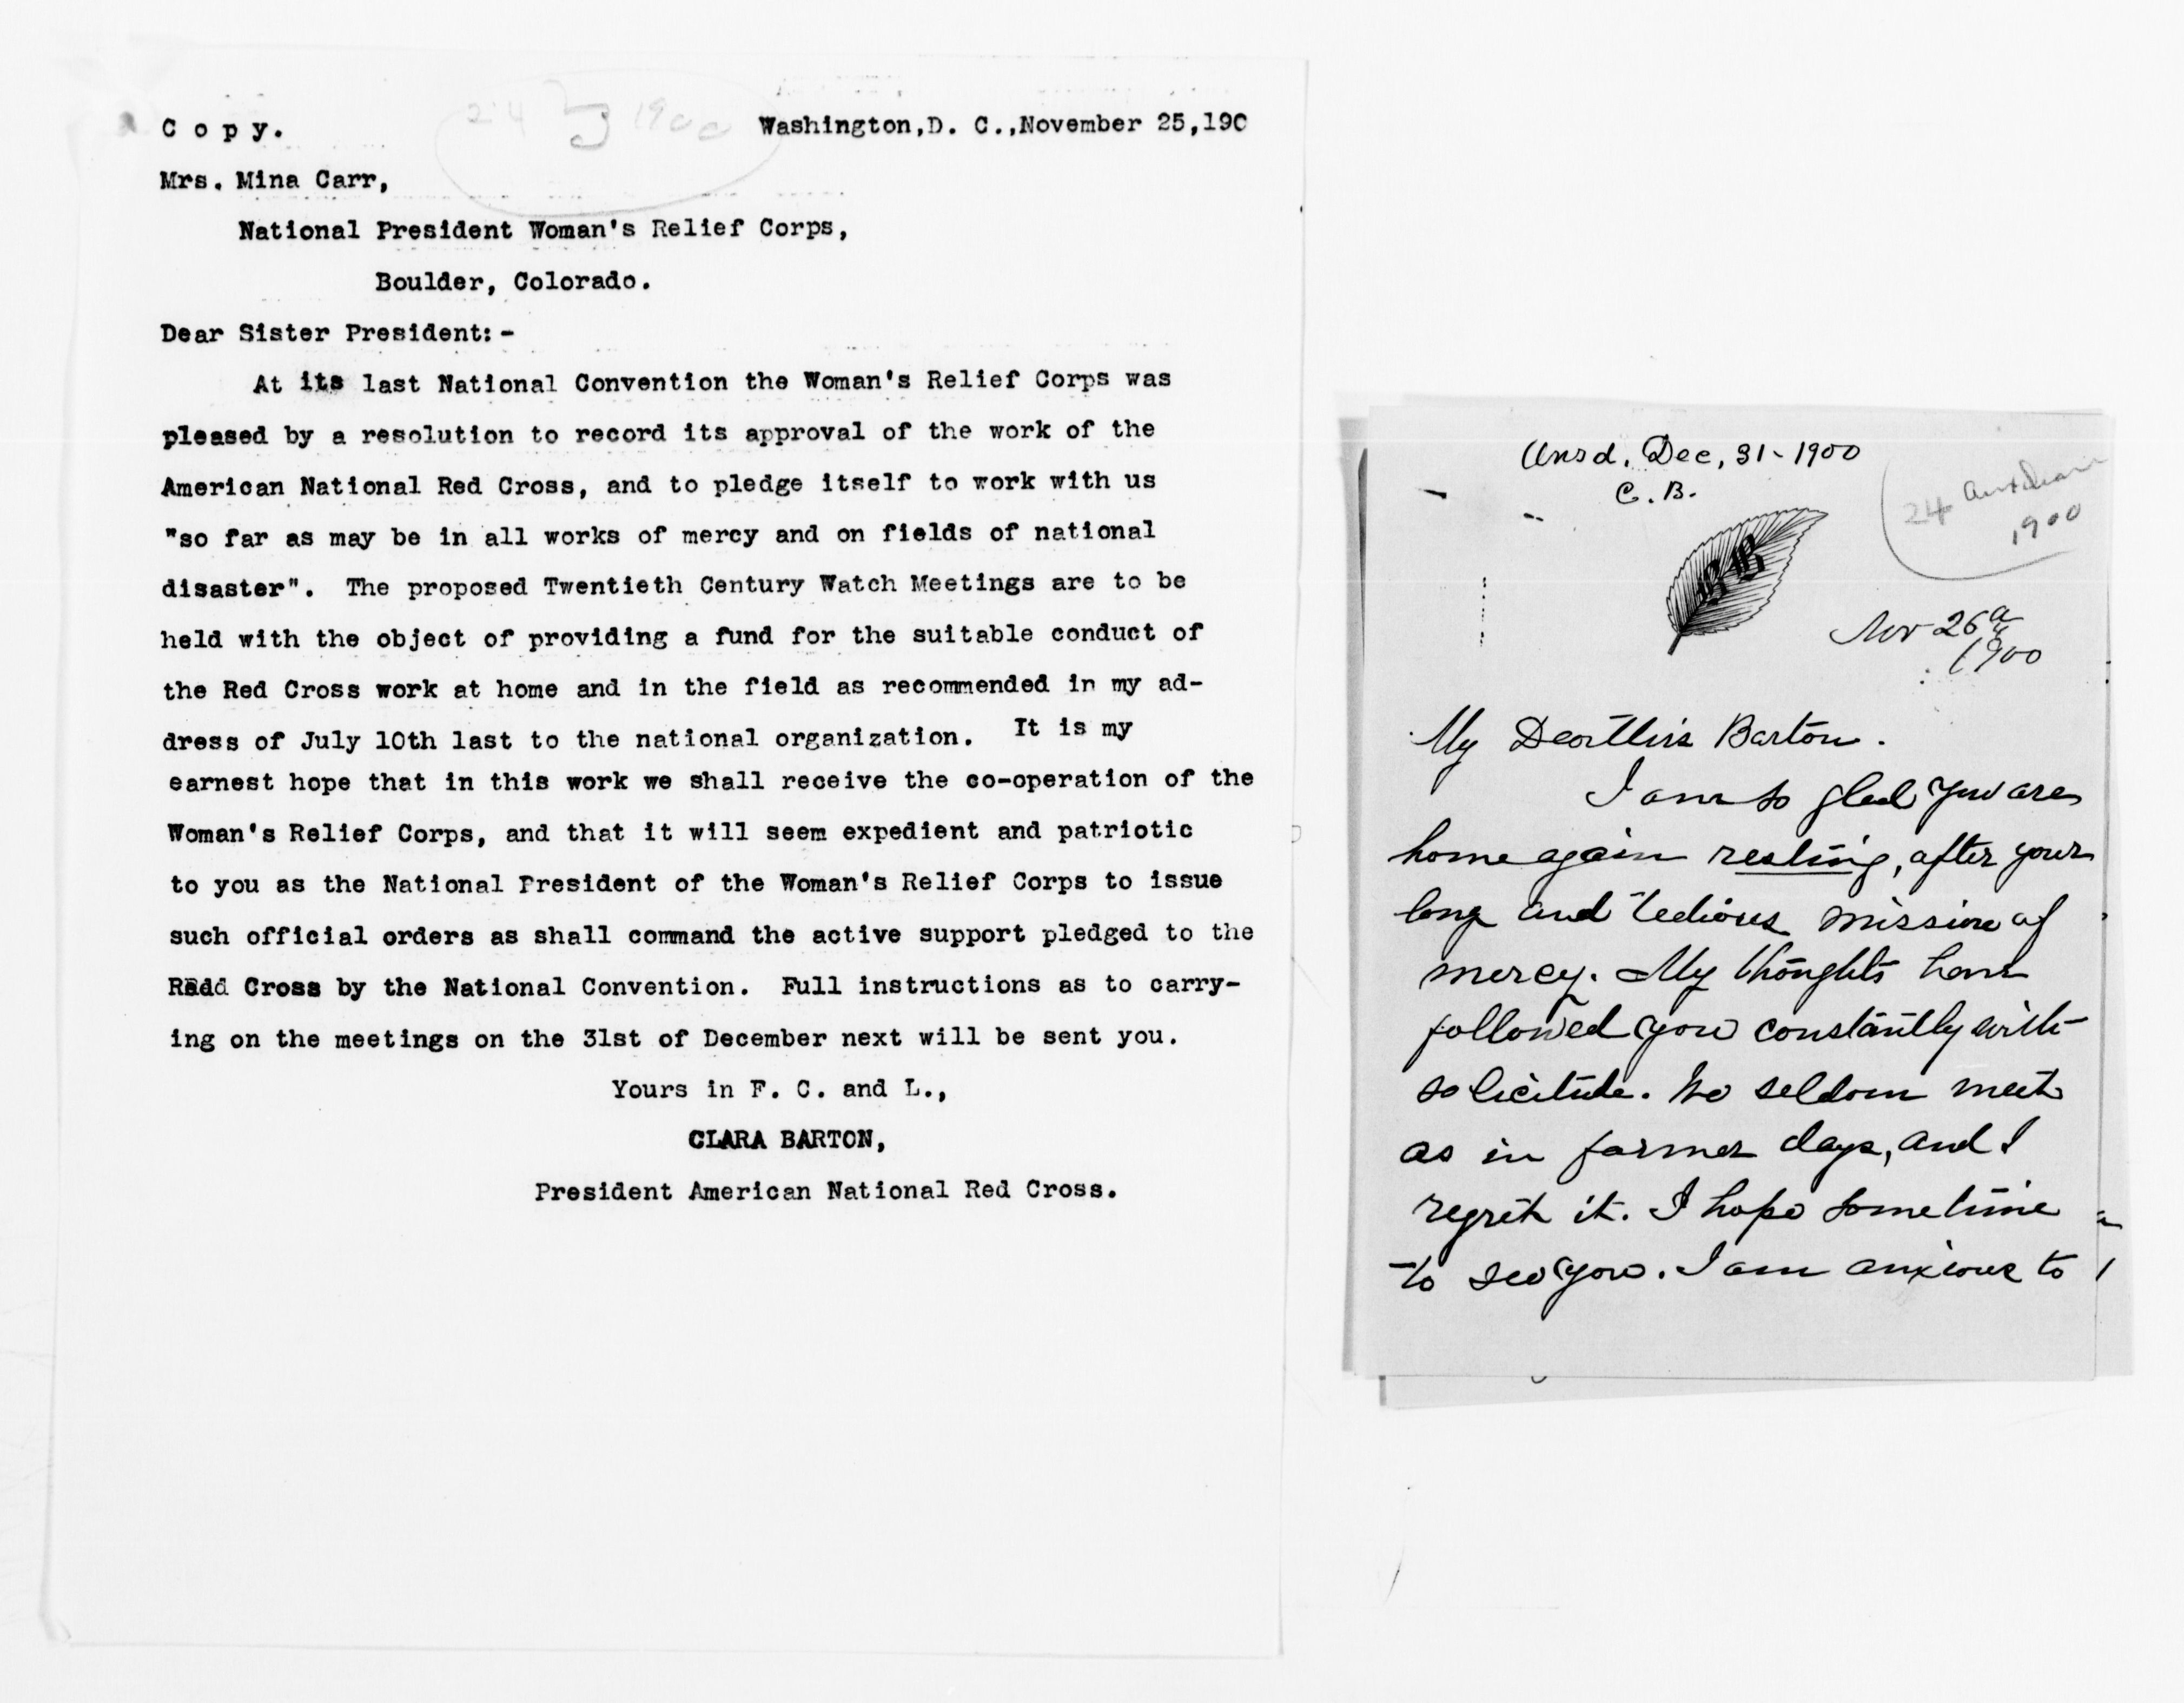 Copy.
24 1900
Washington,D. C.,November 25,190
Mrs. Mina Carr,
National President Woman's Relief Corps,
Boulder, Colorado.
Dear Sister President:-
At its last National Convention the Woman's Relief Corps was
pleased by a resolution to record its approval of the work of the
American National Red Cross, and to pledge itself to work with us
"so far as may be in all works of mercy and on fields of national
disaster". The proposed Twentieth Century Watch Meetings are to be
held with the object of providing a fund for the suitable conduct of
the Red Cross work at home and in the field as recommended in my ad-
dress of July 10th last to the national organization. It is my
earnest hope that in this work we shall receive the co-operation of the
Woman's Relief Corps, and that it will seem expedient and patriotic
to you as the National President of the Woman's Relief Corps to issue
such official orders as shall command the active support pledged to the
Redd Cross by the National Convention. Full instructions as to carry-
ing on the meetings on the 31st of December next will be sent you.
Yours in F. C. and L.,
CLARA BARTON,
President American National Red Cross.
Ansd. Dec, 31-1900
C. B.
24
1900
Nov 26
1900
My Dear Miss Barton.
I am so glad you are
home again resting, after your
long and tedious mission of
mercy. My thoughts have
followed you constantly with
solicitude. We seldom meet
as in former days, and I
regret it. I hope sometime
to see you. I am anxious to